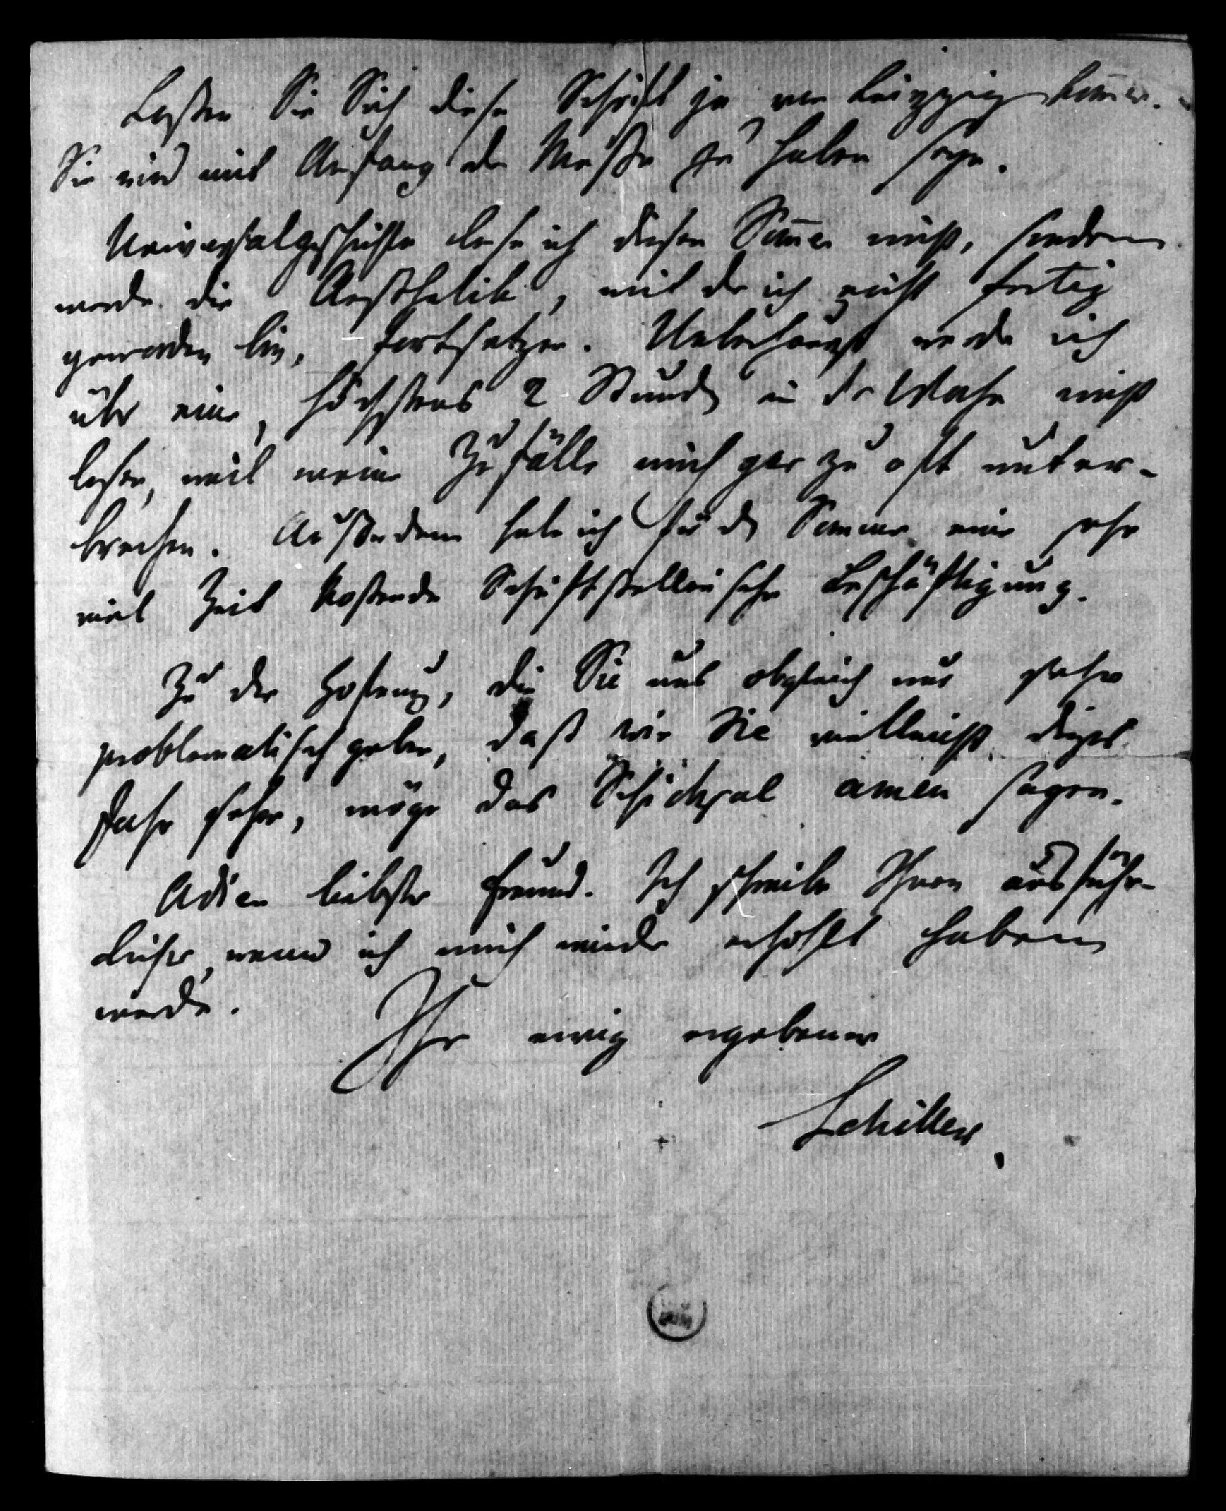 Laßen Sie Sich diese Schrift ja von Leipzig kom̄en.
Sie wird mit Anfang der Meße zu haben seyn.
Universalgeschichte lese ich diesen Som̄er nicht, sondern
werde die Aesthetik, mit der ich nicht fertig
geworden bin, fortsetzen. Ueberhaupt werde ich
über eine, höchstens 2 Stunden in der Woche nicht
lesen, weil meine Zufälle mich gar zu oft unter-
brechen. Außerdem habe ich für den Sommer eine sehr
viel Zeit kostende Schriftstellerische Beschäftigung.
Zu der Hofnung, die Sie uns obgleich nur sehr
problematisch geben, daß wir Sie vielleicht dieses
Jahr sehen, möge das Schicksal amen sagen.
Adieu liebster Freund. Ich schreibe Ihnen ausführ-
licher, wenn ich mich wieder erhohlt haben
werde.
Ihr ewig ergebener
Schiller.